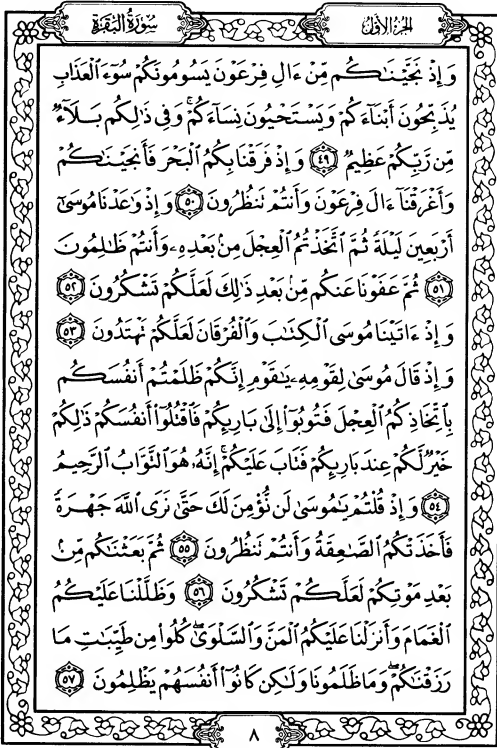 سُورَةُ البَقَرَةِ الجُزءُ الأوّلُ
وَإِذْ نَجَّيْنَٰكُم مِّنْ ءَالِ فِرْعَوْنَ يَسُومُونَكُمْ سُوٓءَ ٱلْعَذَابِ
يُذَبِّحُونَ أَبْنَآءَكُمْ وَيَسْتَحْيُونَ نِسَآءَكُمْ ۚ وَفِى ذَٰلِكُم بَلَآءٌ
مِّن رَّبِّكُمْ عَظِيمٌ ٤٩ وَإِذْ فَرَقْنَا بِكُمُ ٱلْبَحْرَ فَأَنجَيْنَٰكُمْ
وَأَغْرَقْنَآ ءَالَ فِرْعَوْنَ وَأَنتُمْ تَنظُرُونَ ٥٠ وَإِذْ وَٰعَدْنَا مُوسَىٰٓ
أَرْبَعِينَ لَيْلَةً ثُمَّ ٱتَّخَذْتُمُ ٱلْعِجْلَ مِنۢ بَعْدِهِۦ وَأَنتُمْ ظَٰلِمُونَ
٥١ ثُمَّ عَفَوْنَا عَنكُم مِّنۢ بَعْدِ ذَٰلِكَ لَعَلَّكُمْ تَشْكُرُونَ ٥٢
وَإِذْ ءَاتَيْنَا مُوسَى ٱلْكِتَٰبَ وَٱلْفُرْقَانَ لَعَلَّكُمْ تَهْتَدُونَ ٥٣
وَإِذْ قَالَ مُوسَىٰ لِقَوْمِهِۦ يَٰقَوْمِ إِنَّكُمْ ظَلَمْتُمْ أَنفُسَكُم
بِٱتِّخَاذِكُمُ ٱلْعِجْلَ فَتُوبُوٓا۟ إِلَىٰ بَارِئِكُمْ فَٱقْتُلُوٓا۟ أَنفُسَكُمْ ذَٰلِكُمْ
خَيْرٌ لَّكُمْ عِندَ بَارِئِكُمْ فَتَابَ عَلَيْكُمْ ۚ إِنَّهُۥ هُوَ ٱلتَّوَّابُ ٱلرَّحِيمُ
٥٤ وَإِذْ قُلْتُمْ يَٰمُوسَىٰ لَن نُّؤْمِنَ لَكَ حَتَّىٰ نَرَى ٱللَّهَ جَهْرَةً
فَأَخَذَتْكُمُ ٱلصَّٰعِقَةُ وَأَنتُمْ تَنظُرُونَ ٥٥ ثُمَّ بَعَثْنَٰكُم مِّنۢ
بَعْدِ مَوْتِكُمْ لَعَلَّكُمْ تَشْكُرُونَ ٥٦ وَظَلَّلْنَا عَلَيْكُمُ
ٱلْغَمَامَ وَأَنزَلْنَا عَلَيْكُمُ ٱلْمَنَّ وَٱلسَّلْوَىٰ ۖ كُلُوا۟ مِن طَيِّبَٰتِ مَا
رَزَقْنَٰكُمْ ۖ وَمَا ظَلَمُونَا وَلَٰكِن كَانُوٓا۟ أَنفُسَهُمْ يَظْلِمُونَ ٥٧
٨